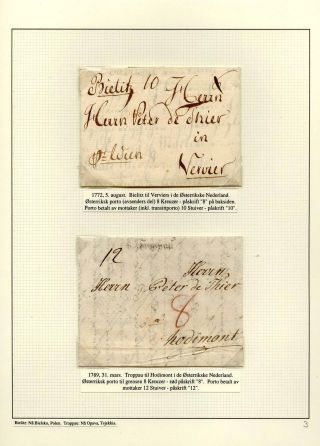 Bielitz 10 Herrn
Herrn Peter de Thier
in
p Wien
Vervier
1772, 5. august. Bielitz til Verviers i de Østerrikske Nederland.
Østerriksk porto (avsenders del) 8 Kreuzer - påskrift "8" på baksiden.
Porto betalt av mottaker (inkl. transittporto) 10 Stuiver - påskrift "10".
12
Herrn
Herrn Peter de Thier
8
Hodimont
1769, 31. mars. Troppau til Hodimont i de Østerrikske Nederland.
Østerriksk porto til grensen 8 Kreuzer - rød påskrift "8". Porto betalt av
mottaker 12 Stuiver - påskrift "12".
Bielitz: Nå Bielsko, Polen. Troppau: Nå Opava, Tsjekkia.
3